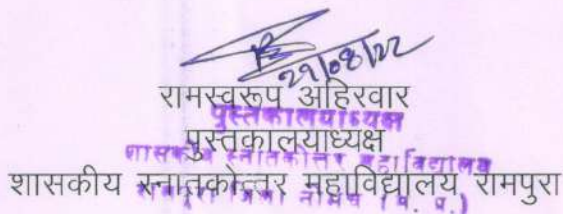 29/08/22
रामस्वरूप अहिरवार
पुस्तकालयाध्यक्ष
पुस्तकालयाध्यक्ष
शासकीय स्नातकोत्तर महाविद्यालय
शासकीय स्नातकोत्तर महाविद्यालय रामपुरा
रामपुरा जिला नीमच (म. प्र.)